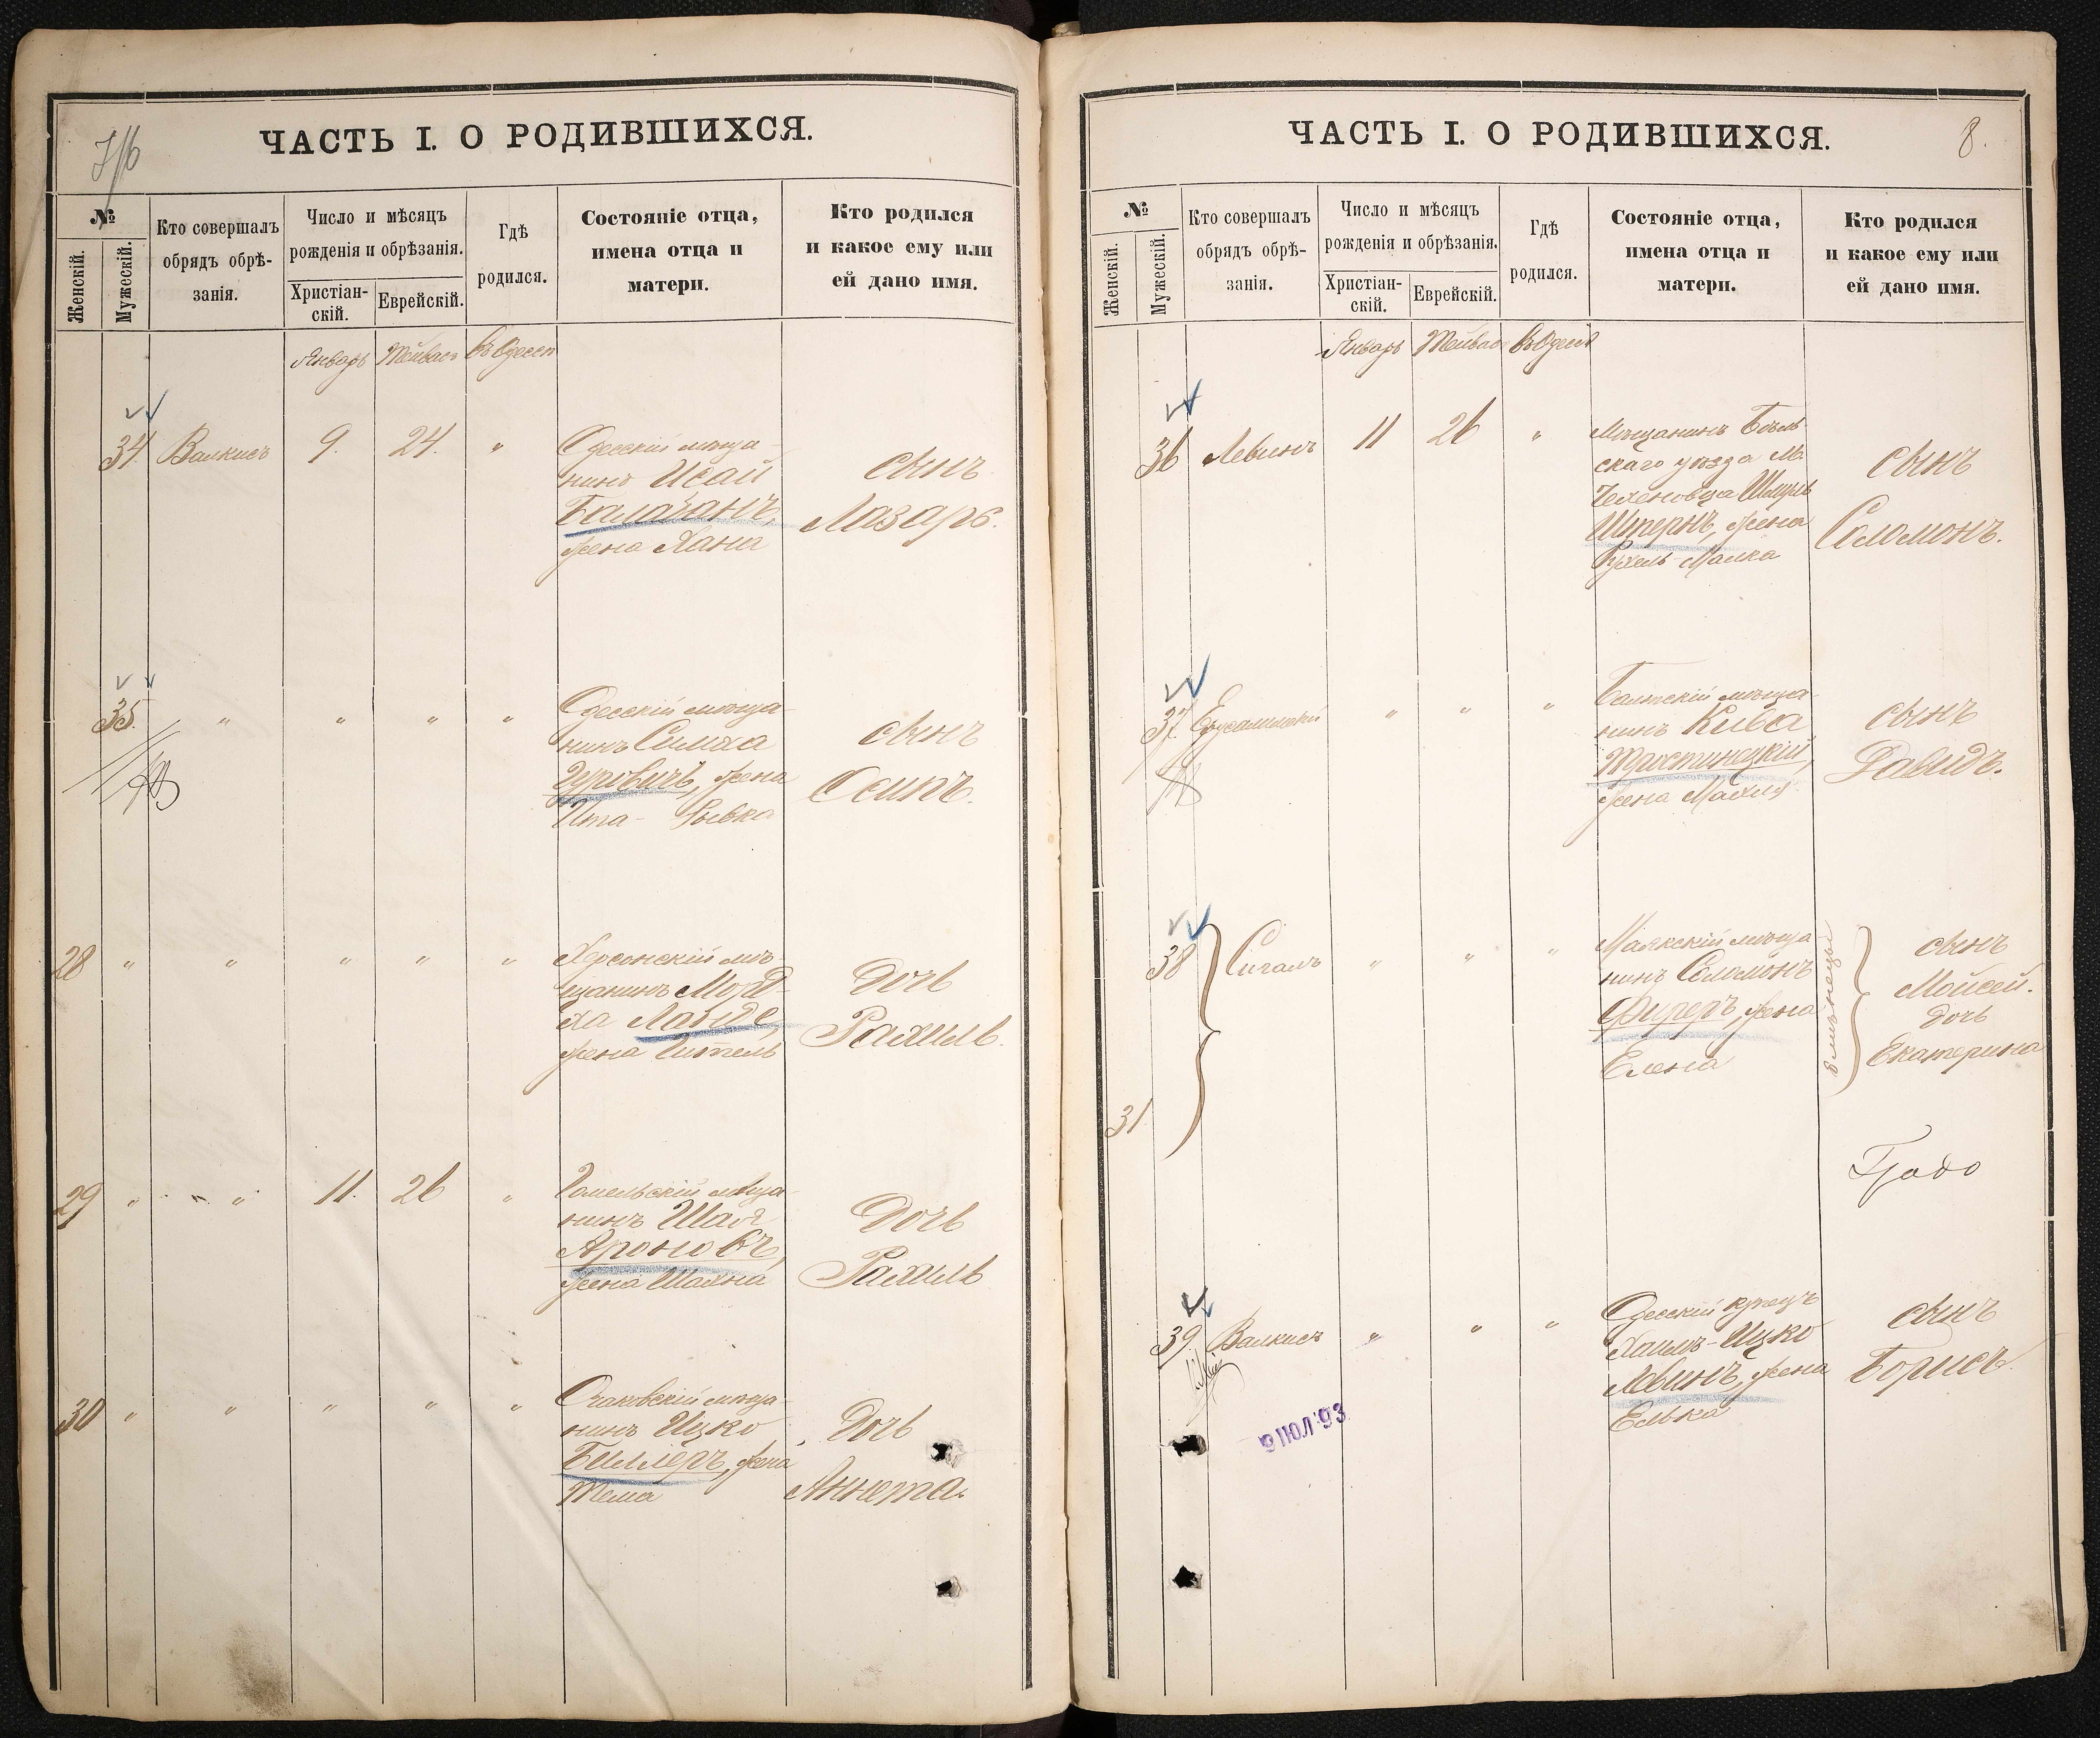 ЧАСТЬ I. О РОДИВШИХСЯ.
№
Женскій.
Мужескій.
Кто совершалъ
обрядъ обрѣ-
занія.
Число и мѣсяцъ
рожденія и обрѣзанія.
Христіан-
скій.
Еврейскій.
Гдѣ
родился.
Состояніе отца,
имена отца и
матери.
Кто родился
и какое ему или
ей дано имя.
Январь Тейвас Въ Одессѣ
34. Валкисъ 9. 24. "
Одесскій мѣща-
нинъ Исай
Балабанъ,
жена Хана
сынъ
Лазарь.
35. " " " "
Одесскій мѣща-
нинъ Симха
Гуровичъ, жена
Ита - Рывка
сынъ
Осипъ.
28 " " " " "
Херсонскій мѣ-
щанинъ Морд-
ха Ланде,
жена Гитель
Дочь
Рахиль.
29 " " 11. 26 "
Гомельскій мѣща-
нинъ Шая
Ароновъ,
жена
Дочь
Рахиль
30 " " " " "
Очаковскій мѣща-
нинъ Ицко
Биллеръ, жена
Тема
Дочь
Аннета.
ЧАСТЬ I. О РОДИВШИХСЯ.
8.
№
Женскій.
Мужескій.
Кто совершалъ
обрядъ обрѣ-
занія.
Число и мѣсяцъ
рожденія и обрѣзанія.
Христіан-
скій.
Еврейскій.
Гдѣ
родился.
Состояніе отца,
имена отца и
матери.
Кто родился
и какое ему или
ей дано имя.
Январь Тейвас Въ Одессѣ
36 Левинъ 11 26 "
Мѣщанинъ Бѣль
скаго уѣзда м.
Цехеновца Шмуль
Штернъ, жена
Рухель-Малка
сынъ
Соломонъ.
37. Ерусалимскій " " "
Балтскій мѣща-
нинъ Кива
Тростинецкій,
жена Махля
сынъ
Давидъ.
38 Сигалъ " " "
Маякскій мѣща
нинъ Соломонъ
Фиреръ, жена
Елена
близнецы
сынъ
Мойсей.
дочь
Екатерина
31
39. Валкисъ " " "
Одесскій купецъ
Хаимъ-Ицко
Левинъ, жена
Елька
сынъ
Борисъ.
9 ІЮЛ 93